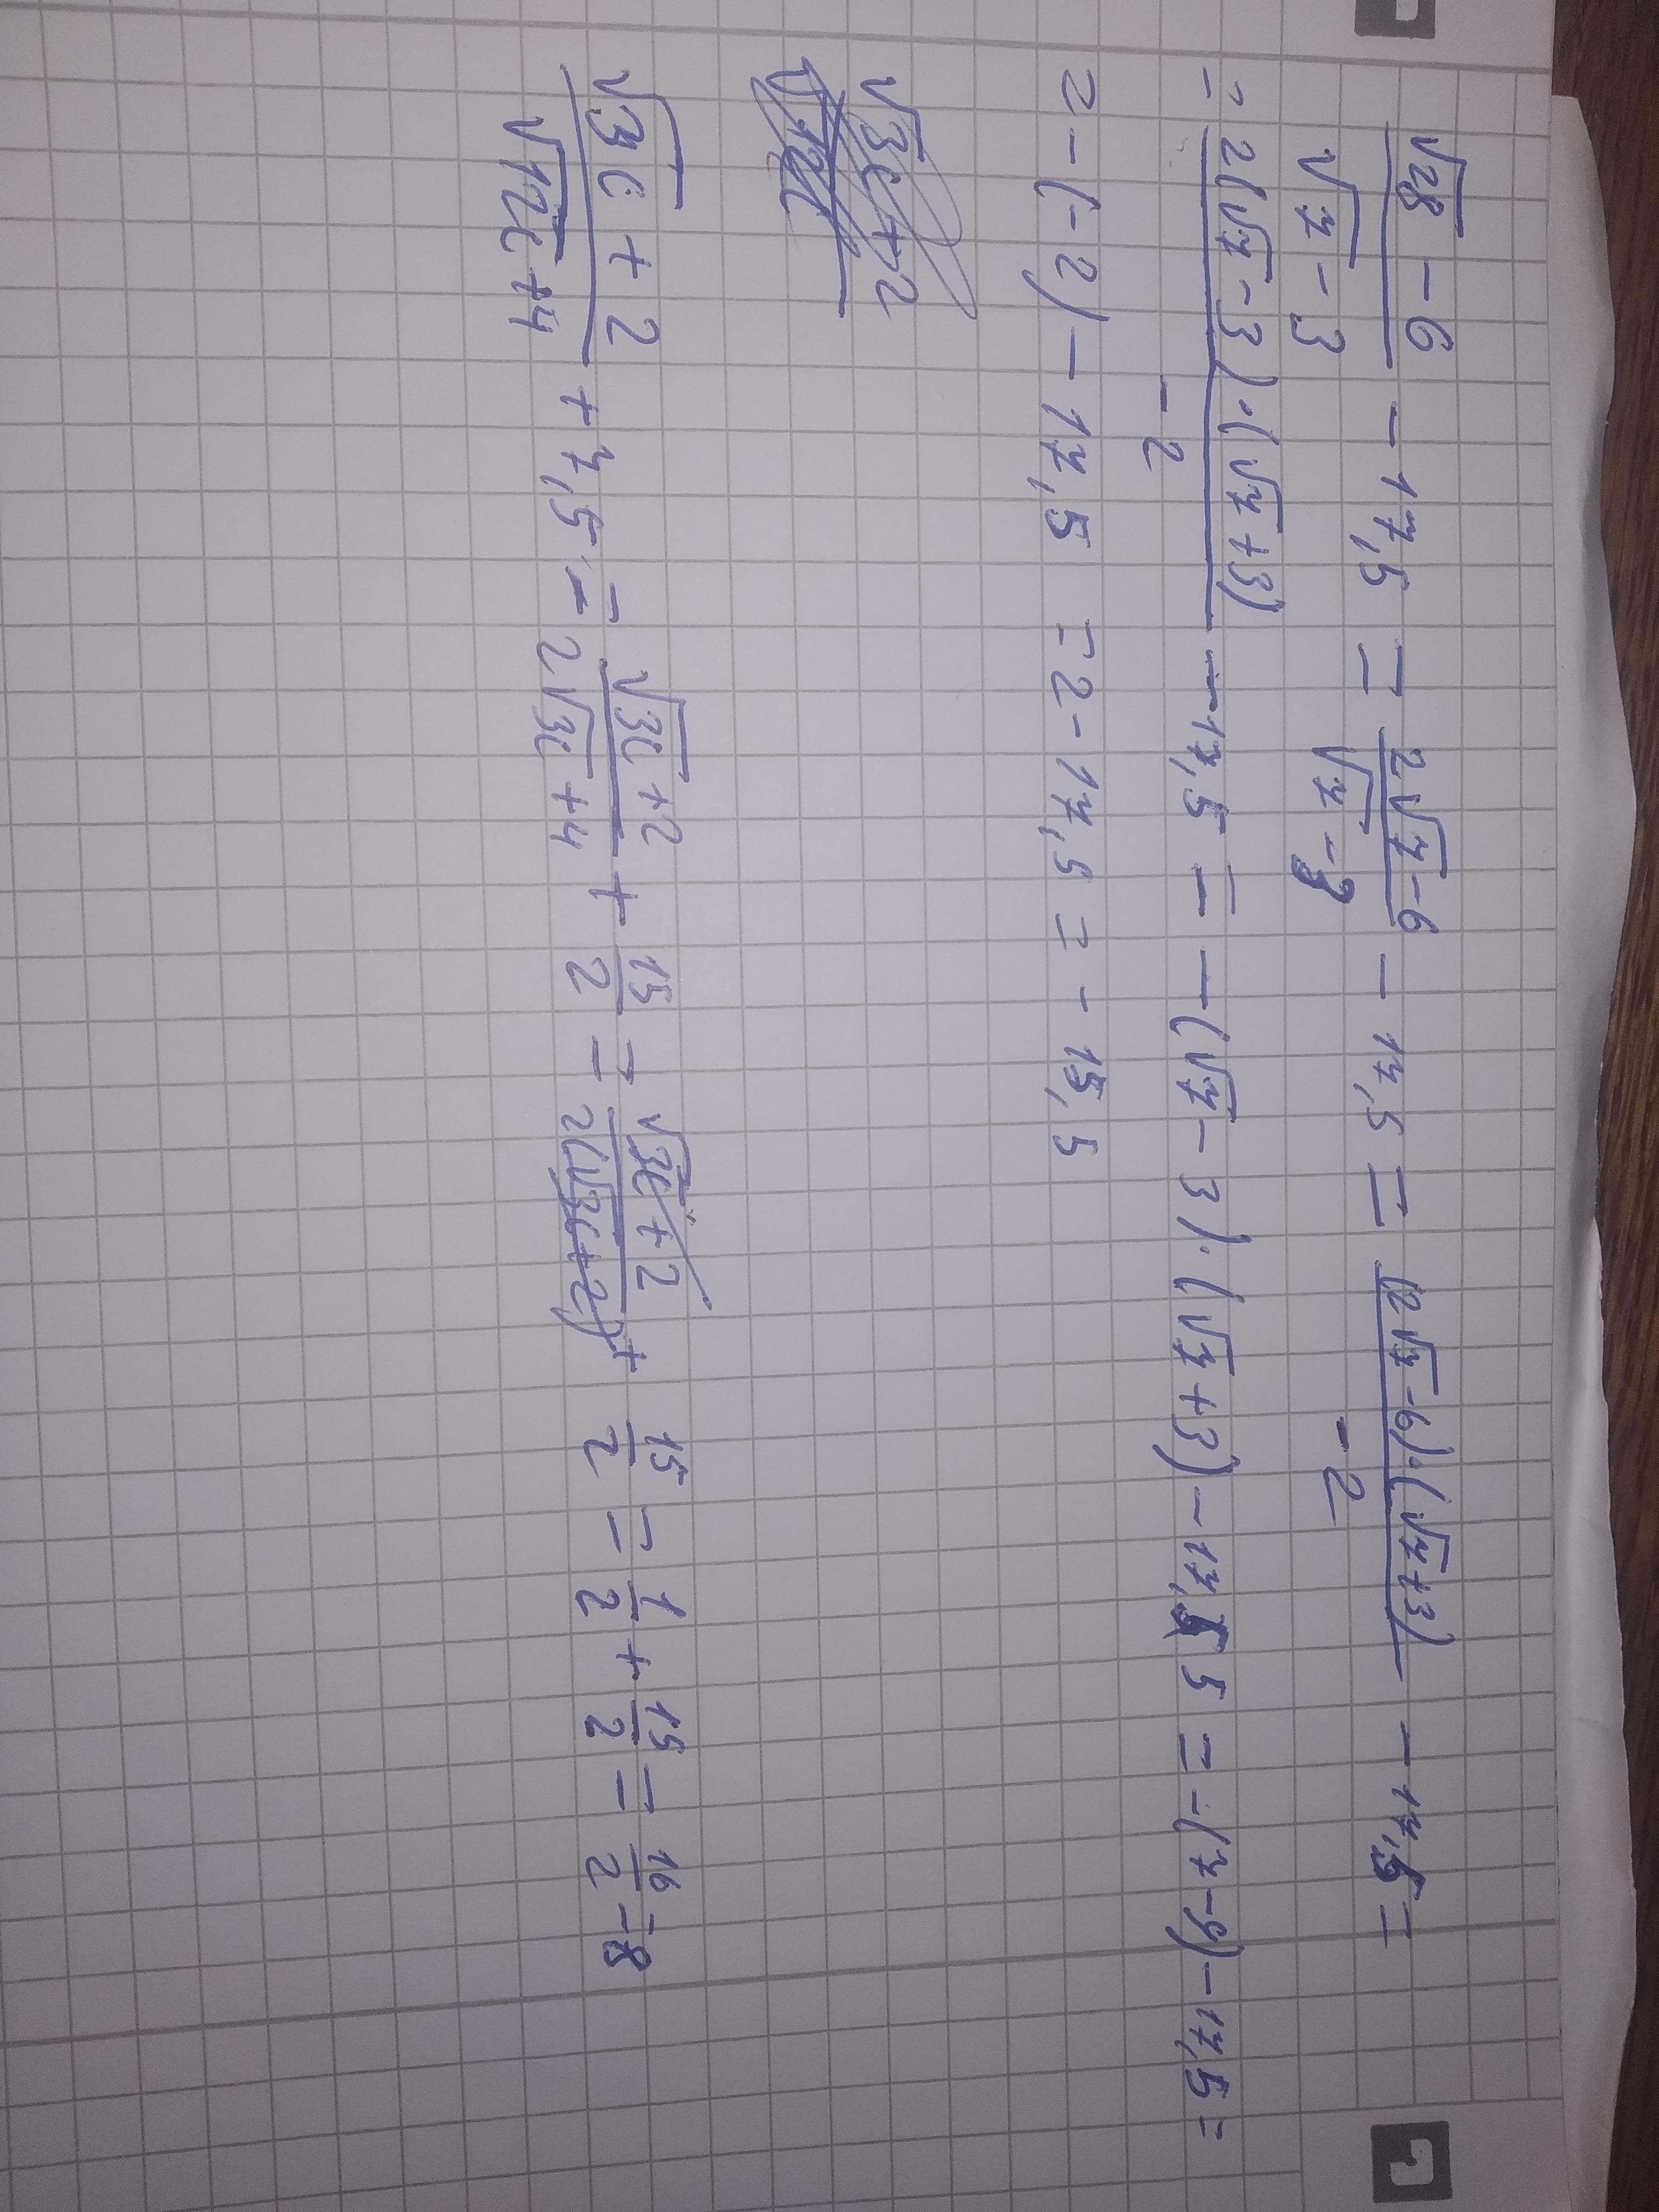 (√28 - 6)/(√7 - 3) - 17,5 = (2√7 - 6)/(√7 - 3) - 17,5 = ((2√7 - 6)·(√7 + 3))/(-2) - 17,5 =
= (2(√7 - 3)·(√7 + 3))/(-2) - 17,5 = -(√7 - 3)·(√7 + 3) - 17,5 = -(7 - 9) - 17,5 =
= -(-2) - 17,5 = 2 - 17,5 = - 15,5
√3c + 2
(√3c + 2)/(√12c + 4) + 7,5 = (√3c + 2)/(2√3c + 4) + 15/2 = (√3c + 2)/(2(√3c + 2)) + 15/2 = 1/2 + 15/2 = 16/2 = 8